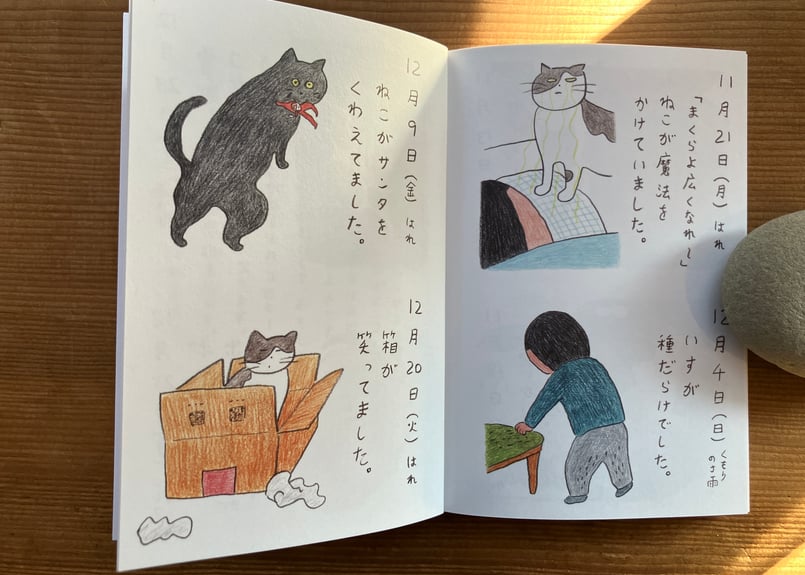 11月21日(月)はれ
「まくらよ広くなれ〜」
ねこが魔法を
かけていました。
12月4日(日)くもりのち雨
いすが
種だらけでした。
12月9日(金)はれ
ねこがサンタを
くわえてました。
12月20日(火)はれ
箱が
笑ってました。